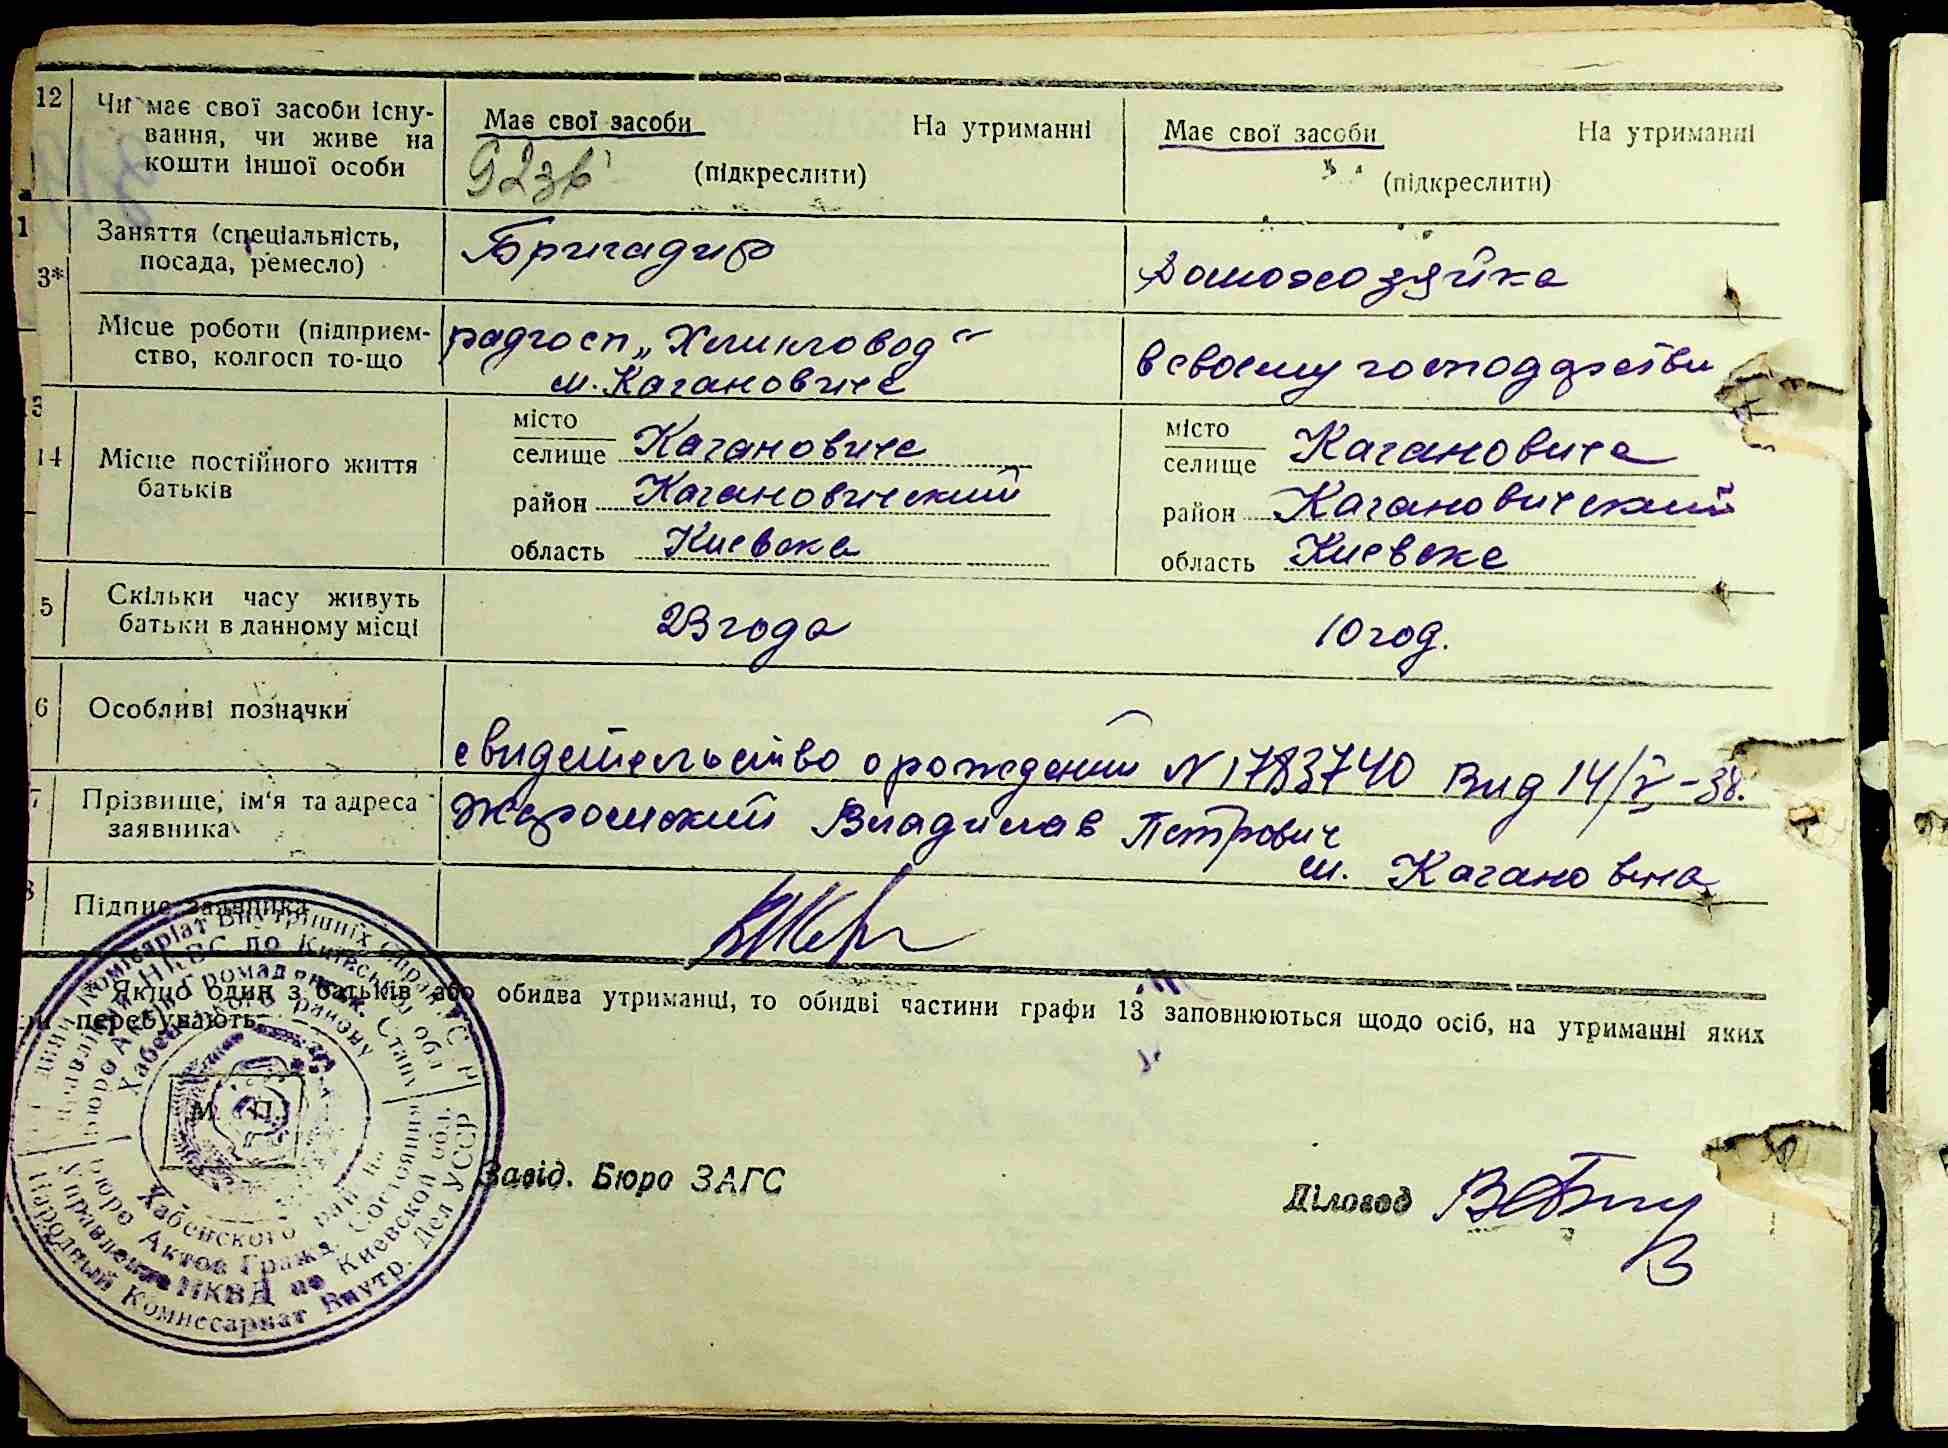 12
Чи має свої засоби існу-
вання, чи живе на
кошти іншої особи
Має свої засоби
На утриманні
(підкреслити)
Має свої засоби
На утриманні
(підкреслити)
1
3*
Заняття (спеціальність,
посада, ремесло)
Бригадир
Домохозяйка
Місце роботи (підприєм-
ство, колгосп то-що
радгосп „Хмилловод“
м. Кагановича
в своему господарстви
14
Місце постійного життя
батьків
місто
селище Кагановича
район Кагановичский
область Киевска
місто
селище Кагановича
район Кагановичский
область Киевска
5
Скільки часу живуть
батьки в данному місці
23 года
10 год.
6
Особливі позначки
свидетельство о рождении N 1783740 Вид 14/V-38.
7
Прізвище, ім'я та адреса
заявника
Жеромский Владислав Петрович
м. Кагановича
Підпис заявника
Якщо один з батьків або обидва утриманці, то обидві частини графи 13 заповнюються щодо осіб, на утриманні яких
перебувають
М. П.
Народный Комиссариат Внутр. Дел УССР
Управление НКВД по Киевской обл.
Бюро Актов Гражд. Состояния
Хабенского рай-на
Завід. Бюро ЗАГС
Діловод